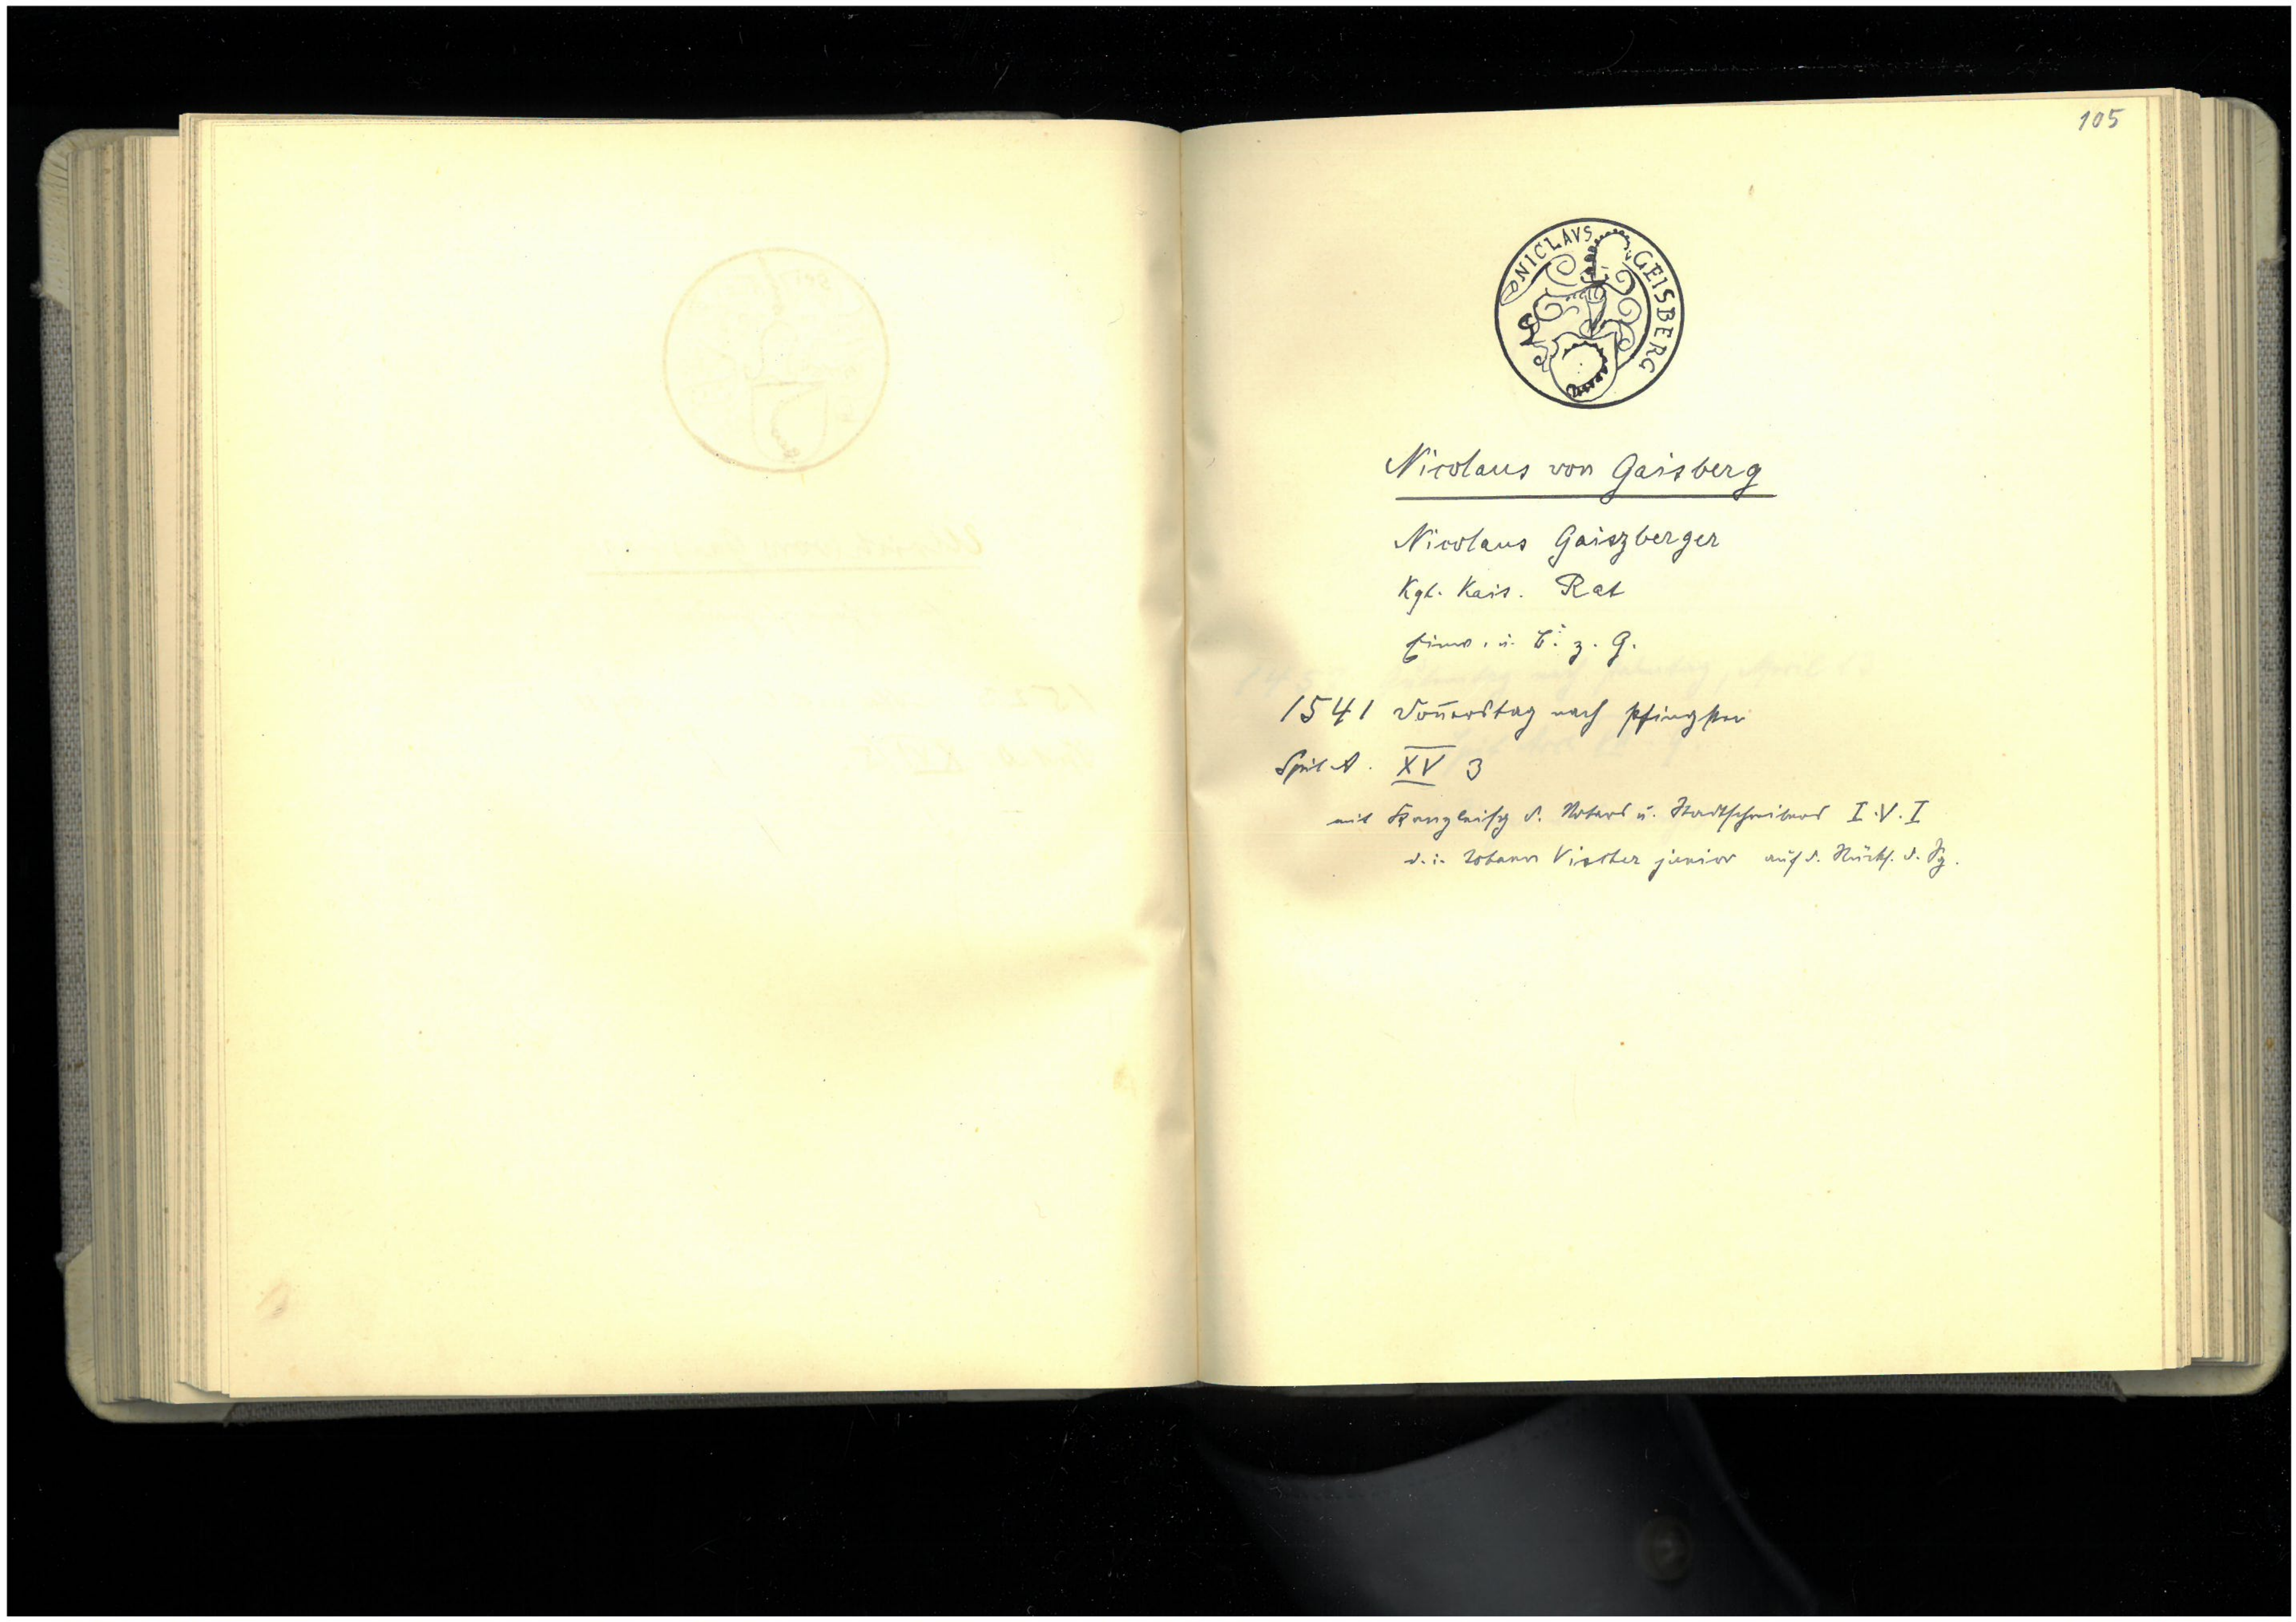 105
NICLAVS GEISBERG
Nicolaus von Gaisberg
Nicolaus Gaiszberger
Kgl. Kais. Rat
Einw. u. B. z. G.
1541 Donnerstag nach Pfingsten
Spit. A. XV 3
mit Kanzleisg d. Notars u. Stadtschreibers I. V. I
d. i. Johann Vischer junior auf d. Rücks. d. Sg.